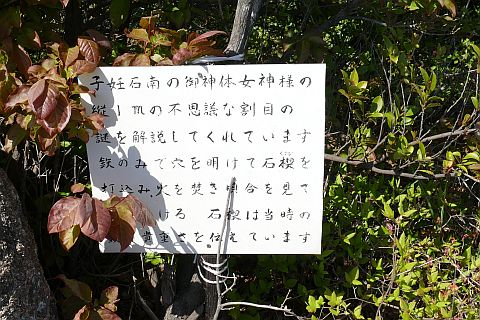 子妊石南の御神体女神様の
縦1mの不思議な割目の
謎を解説してくれています
鉄のみで穴を明けて石楔を
打込み火を焚き頃合を見さ
ける 石楔は当時の
を伝えています